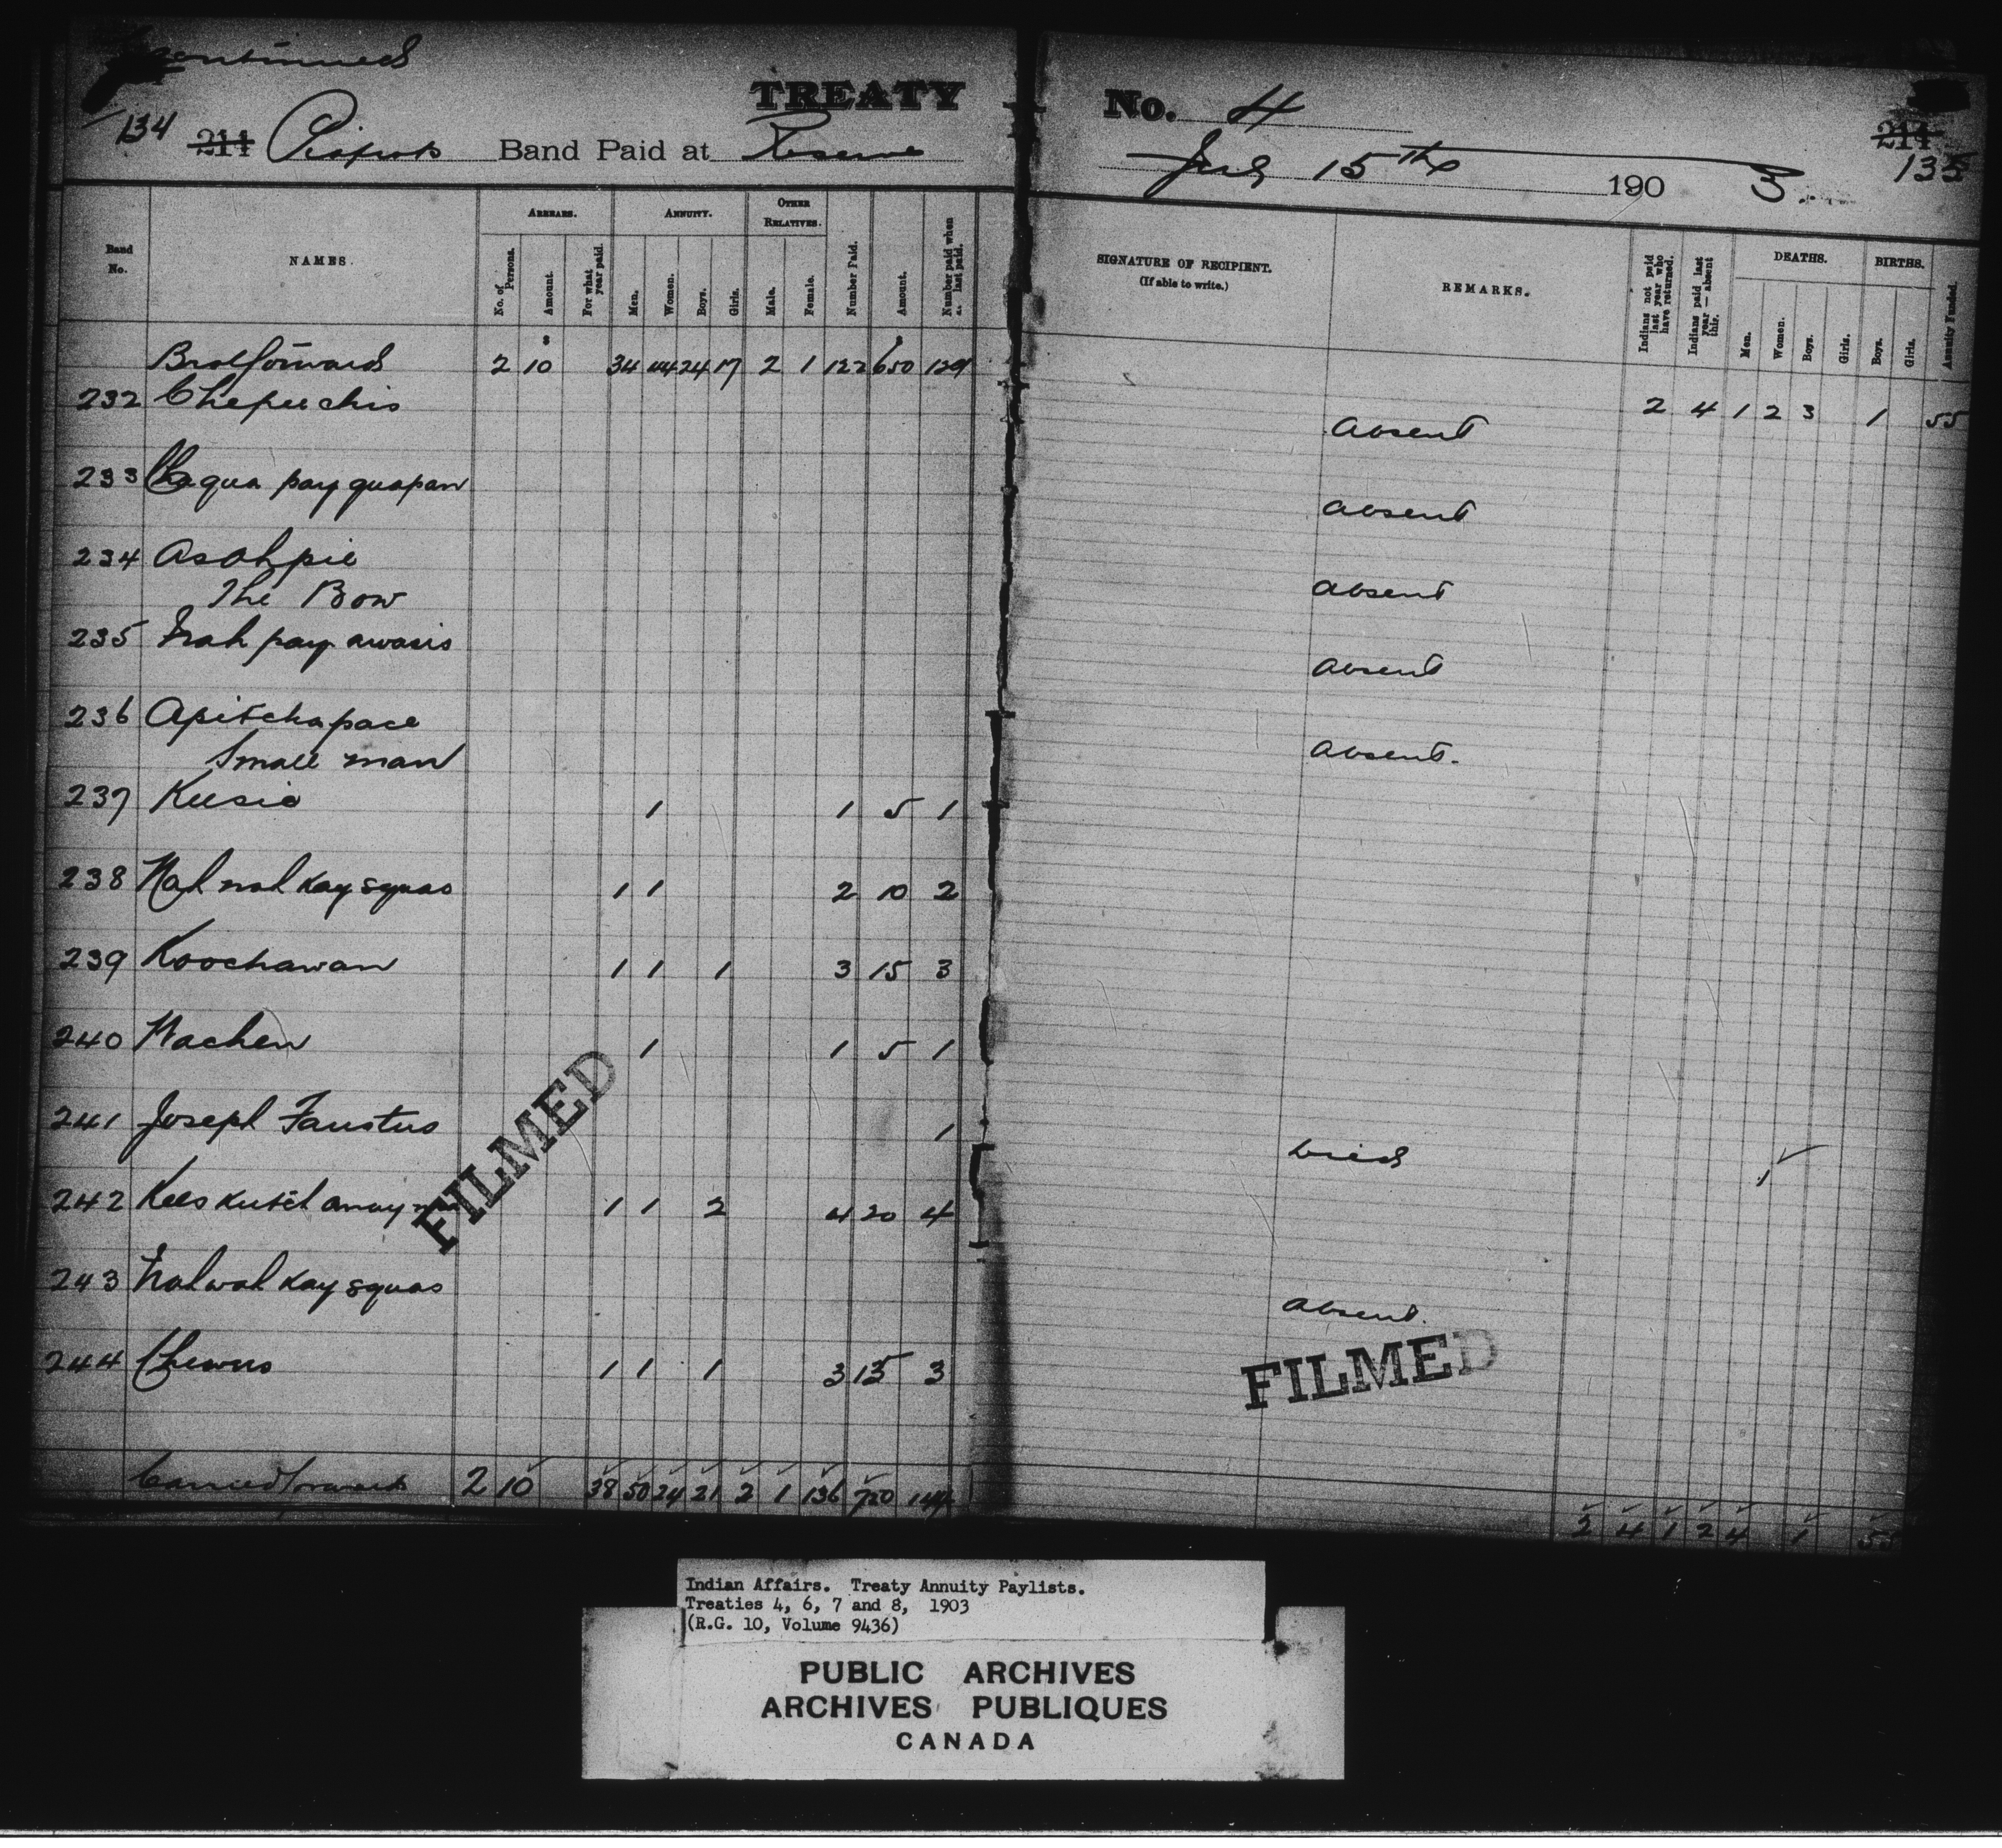 Continued
TREATY No. 4
134 214 Piapots Band Paid at Reserve July 15th 1903. 214 135
Band No. NAMES. ARREARS. ANNUITY. OTHER RELATIVES. Number Paid. Amount. Number paid when last paid. SIGNATURE OF RECIPIENT. (If able to write.) REMARKS. Indians not paid last year who have returned. Indians paid last year — absent this. DEATHS. BIRTHS. Annuity Funded.
No. of Persons. Amount. For what year paid. Men. Women. Boys. Girls. Male. Female. Men. Women. Boys. Girls. Boys. Girls.
Brot forward 2 10 34 44 24 17 2 1 122 650 129 2 4 1 2 3 1 55
232 Chepeechis Absent
233 Chaqua pay quapan Absent
234 Asahpie
The Bow Absent
235 Nah pay awasis Absent
236 Apitchapace
Small man Absent.
237 Keesic 1 1 5 1
238 Nah nah kay squas 1 1 2 10 2
239 Koochawan 1 1 1 3 15 3
240 Wachen 1 1 5 1
241 Joseph Faustus 1 Died 1
242 Kees kutch away 1 1 2 4 20 4
243 Nah wah kay squas Absent.
244 Chewus 1 1 1 3 15 3
Carried forward 2 10 38 50 24 21 2 1 136 720 144 2 4 1 2 4 1 55
FILMED
FILMED
Indian Affairs. Treaty Annuity Paylists.
Treaties 4, 6, 7 and 8, 1903
(R.G. 10, Volume 9436)
PUBLIC ARCHIVES
ARCHIVES PUBLIQUES
CANADA